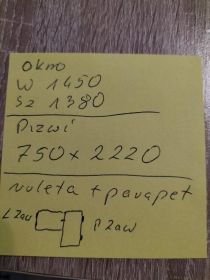 okno
W 1450
Sz 1380
Dizwi
750 x 2220
ruleta + parapet
L zaw
P zaw